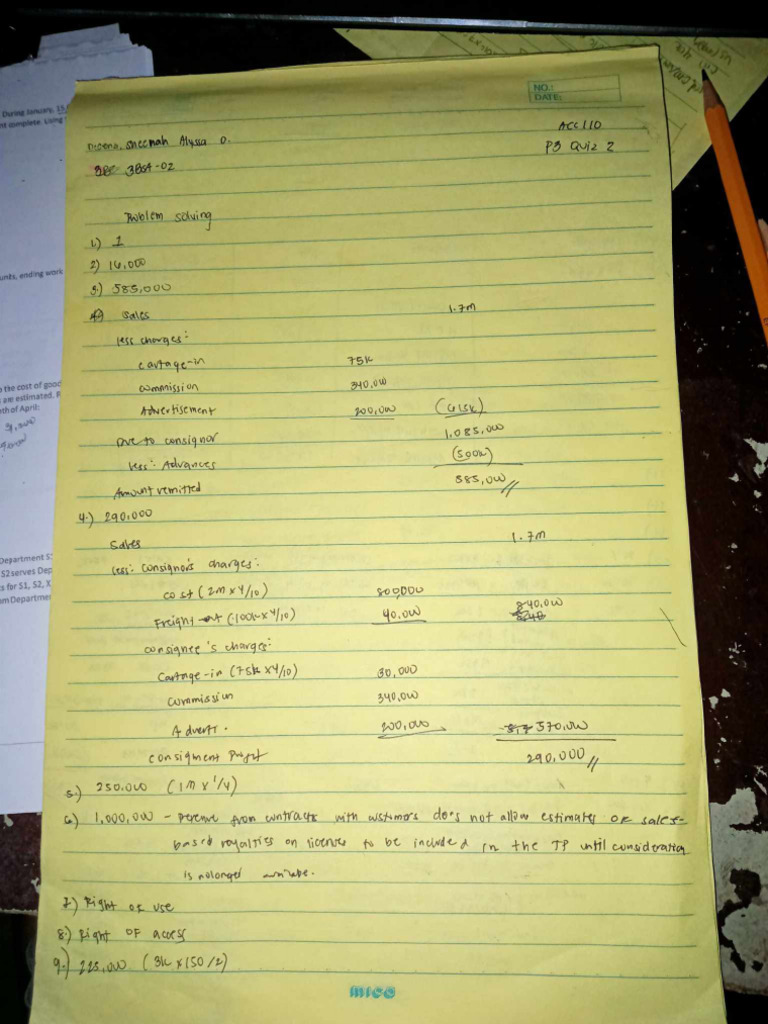 NO.:
DATE:
ACC 110
Sheenah Alyssa D.
P3 Quiz 2
3BSA-02
Problem Solving
1.) 1
2) 16,000
3.) 585,000
Sales 1.7M
less charges:
cartage-in 75k
commission 340,000
Advertisement 200,000 (615k)
Due to consignor 1,085,000
less: Advances (500k)
Amount remitted 585,000//
4.) 290,000
Sales 1.7M
less: consignor's charges:
cost (2M x 4/10) 800,000
Freight (100k x 4/10) 40,000 840,000
consignee's charges:
Cartage-in (75k x 4/10) 30,000
Commission 340,000
Advert. 200,000 570,000
Consigment Profit 290,000//
5.) 250,000 (1M x 1/4)
6.) 1,000,000 - Revenue from contracts with customers does not allow estimates of sales-
based royalties on licenses to be included in the TP until consideration
is nolonger
7.) Right of use
8.) Right of access
9.) 225,000 (3k x 150/2)
mico
During January, 15
nt complete. Using
unts, ending work
o the cost of good
are estimated.
oth of April:
Department S
S2 serves Dep
s for S1, S2, X
om Departme